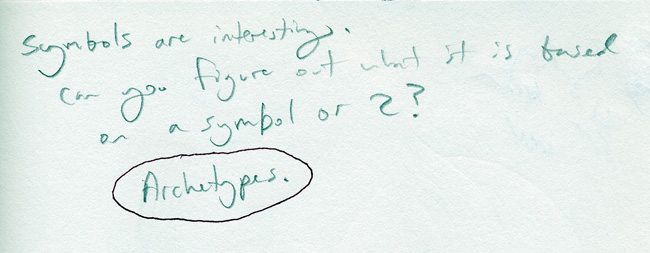 Symbols are interesting.
can you figure out what it is based
on a symbol or 2?
Archetypes.